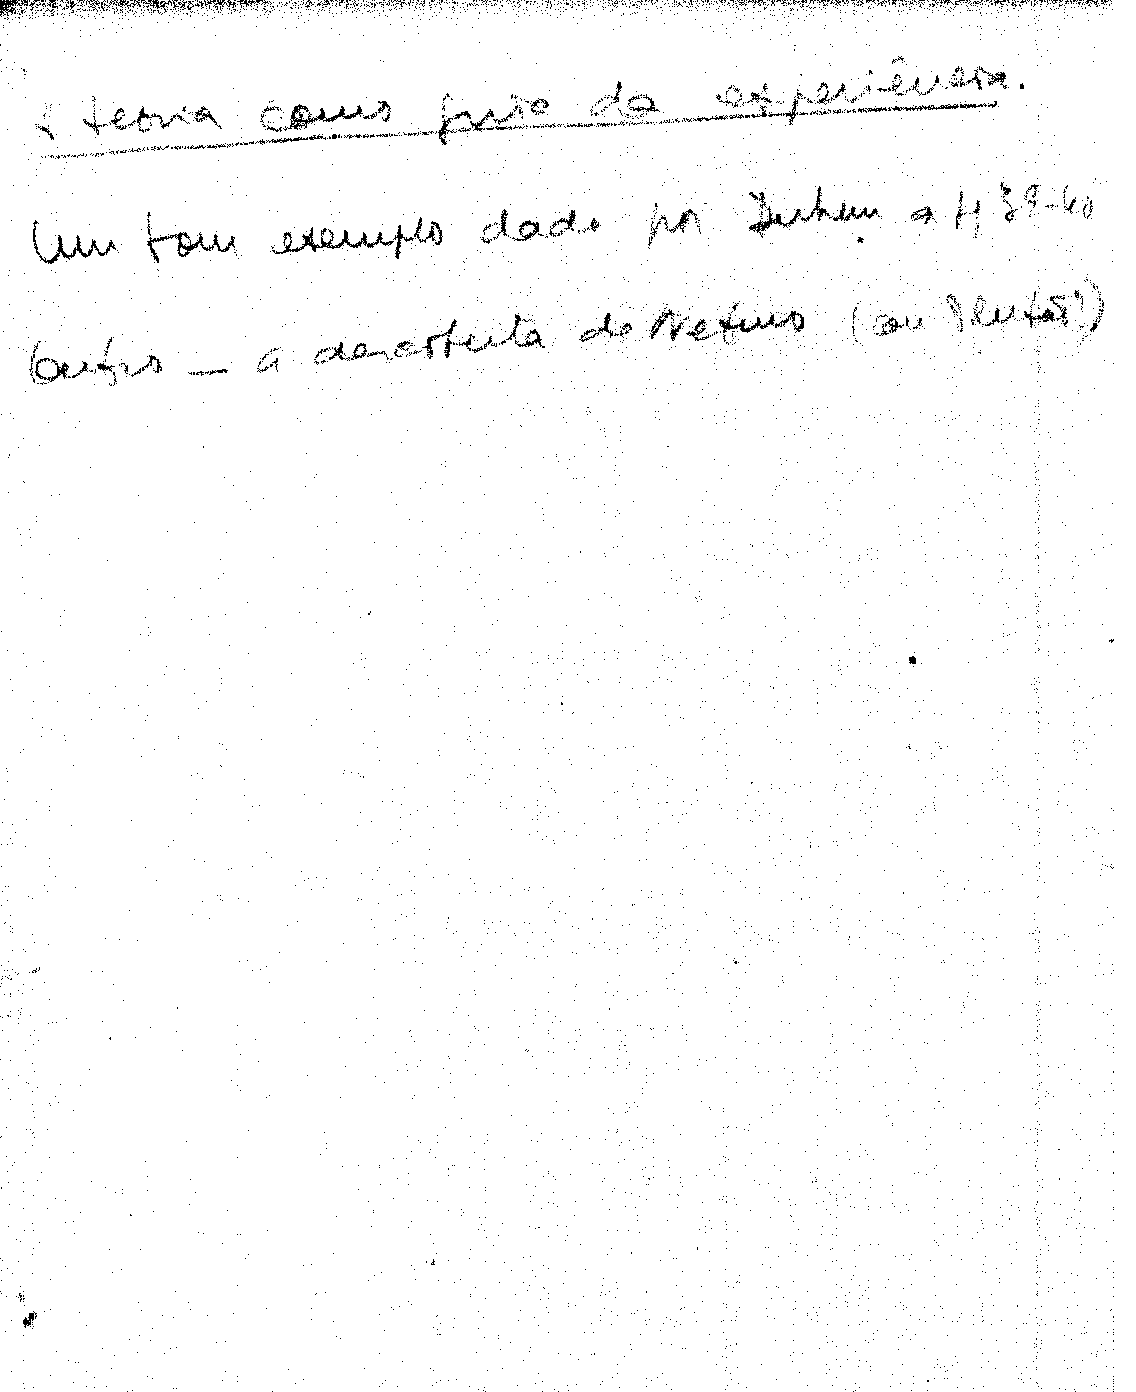 A teoria como guia da experiência.
Um bom exemplo dado por Duhem a pp 39-40
Outro — a descoberta de Netuno (ou Plutão?)